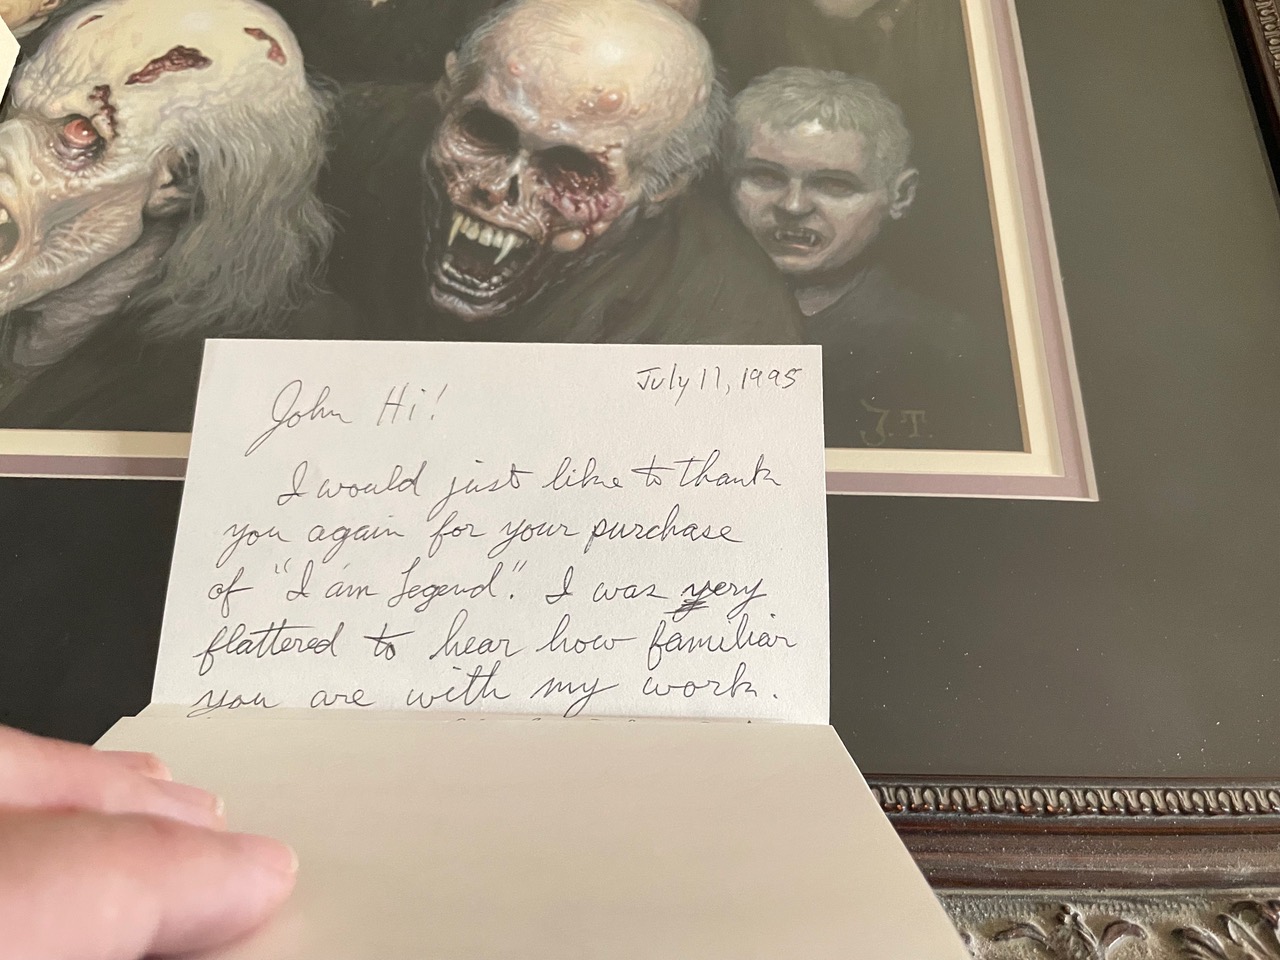 July 11, 1995
John Hi!
I would just like to thank
you again for your purchase
of "I am Legend". I was very
flattered to hear how familiar
you are with my work.
J.T.